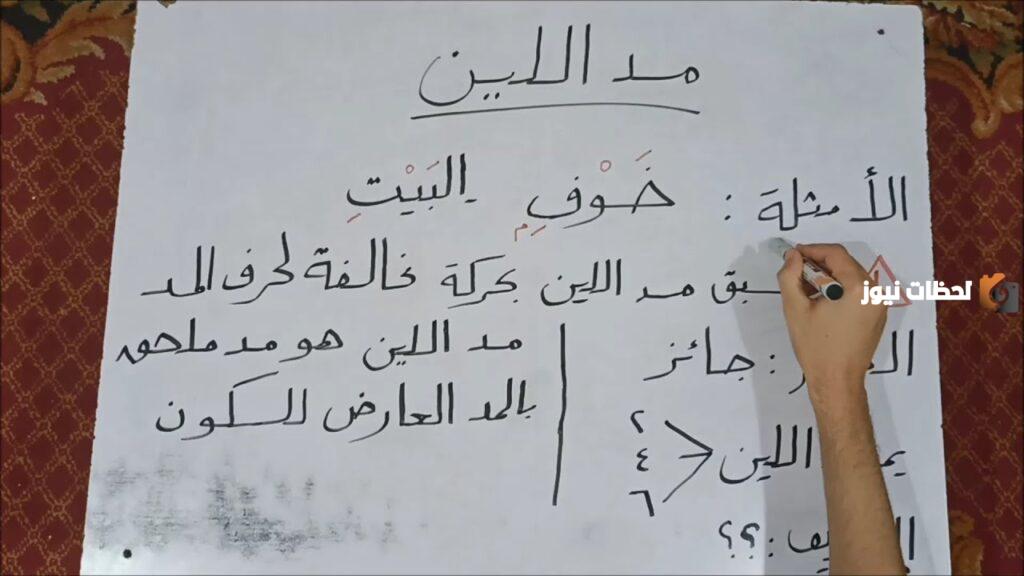 مد اللين
الأمثلة : خَوْفٍ البَيْتِ
لحظات نيوز
سبق مد اللين بحركة مخالفة لحرف المد
: جائز
مد اللين هو مد ملحق
بالمد العارض للسكون
اللين < ٢ ٤ ٦
: ؟؟